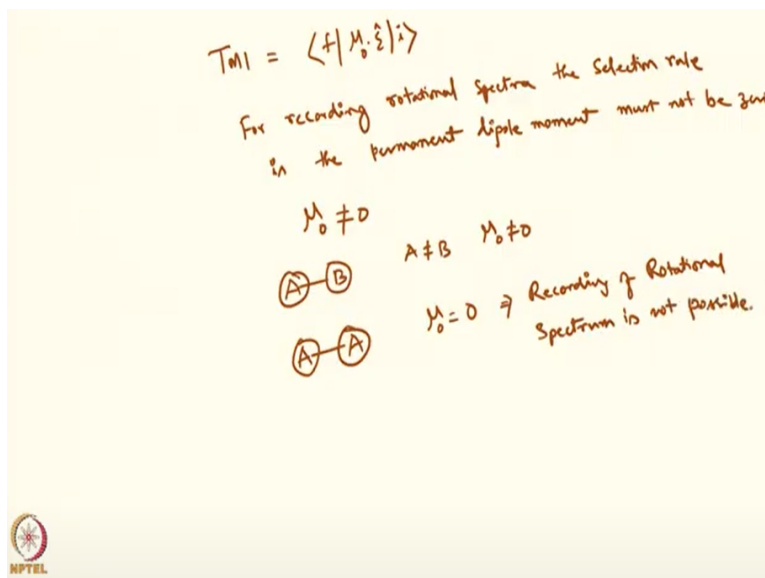 TMI = ⟨f|μ₀·ε̂|i⟩
For recording rotational spectra the selection rule
is the permanent dipole moment must not be zero
μ₀ ≠ 0
A-B A ≠ B μ₀ ≠ 0
A-A μ₀ = 0 ⇒ Recording of Rotational
Spectrum is not possible.
NPTEL